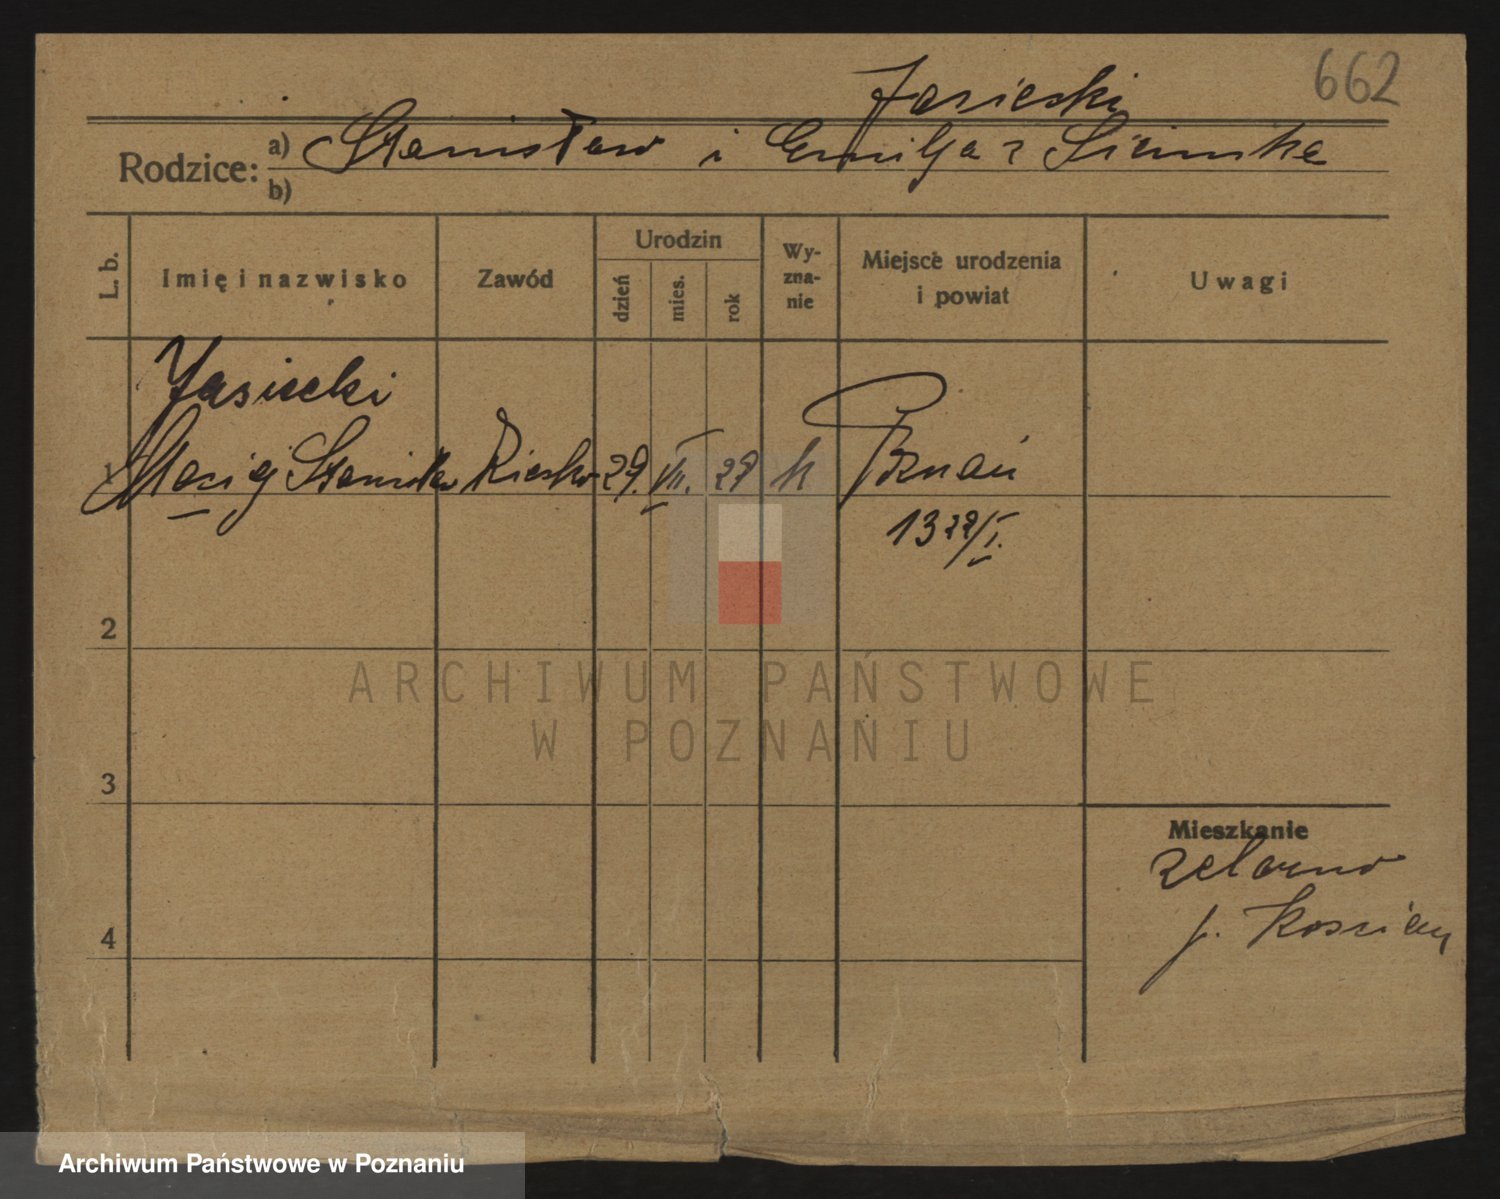 662
Jasiecki
Rodzice: a) Stanisław i Emilja z
b)
L. b.
Imię i nazwisko
Zawód
Urodzin
dzień
mies.
rok
Wy-
zna-
nie
Miejsce urodzenia
i powiat
Uwagi
Jasiecki
1 Maciej Stanisław 29. VII. 27 k Poznań
13 22/I.
2
3
4
Mieszkanie
Zelazno
p. Kościan
ARCHIWUM PAŃSTWOWE
W POZNANIU
Archiwum Państwowe w Poznaniu